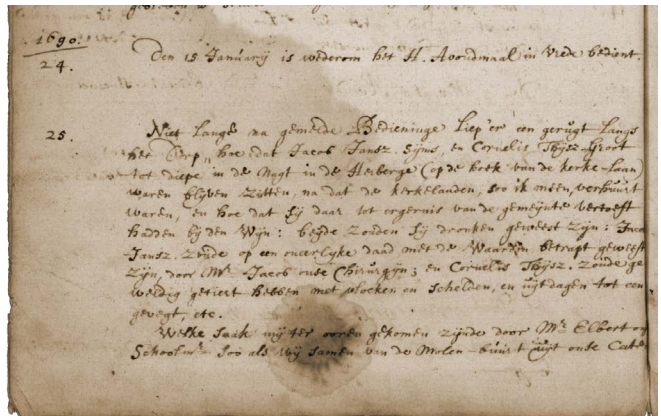 1690.
24. Den 15 Januarij is wederom het H. Avondmaal in vrede bedient.
25. Niet lange na gemelde Bedieninge liep'er een gerugt langs
het Dorp, hoe dat Jacob Jansz. Sijms, en Cornelis Thijsz-Groot
tot diepe in de Nagt in de Herberge (op de hoek van de kerke-Laan)
waren blijven zitten, na dat de kerkelanden, soo ik mien, verhuirt
waren, en hoe dat sij daar tot ergernis van de gemeijnte vertoeft
hadden bij den Wijn: beijde zouden sij dronken geweest zijn: Jacob
Jansz. zoude op een oneerlyke daad met de Waardin betrapt geweest
zijn, door Mr. Jacob onse Chirurgijn; en Cornelis Thijsz. zoude ge
weldig getiert hebben met vloeken en schelden, en uijtdagen tot een
gevegt, etc.
Welke saak mij ter ooren gekomen zijnde door Mr. Elbert on
Schoolmr. soo als wij samen van de Molen-buirt uijt onse Cate